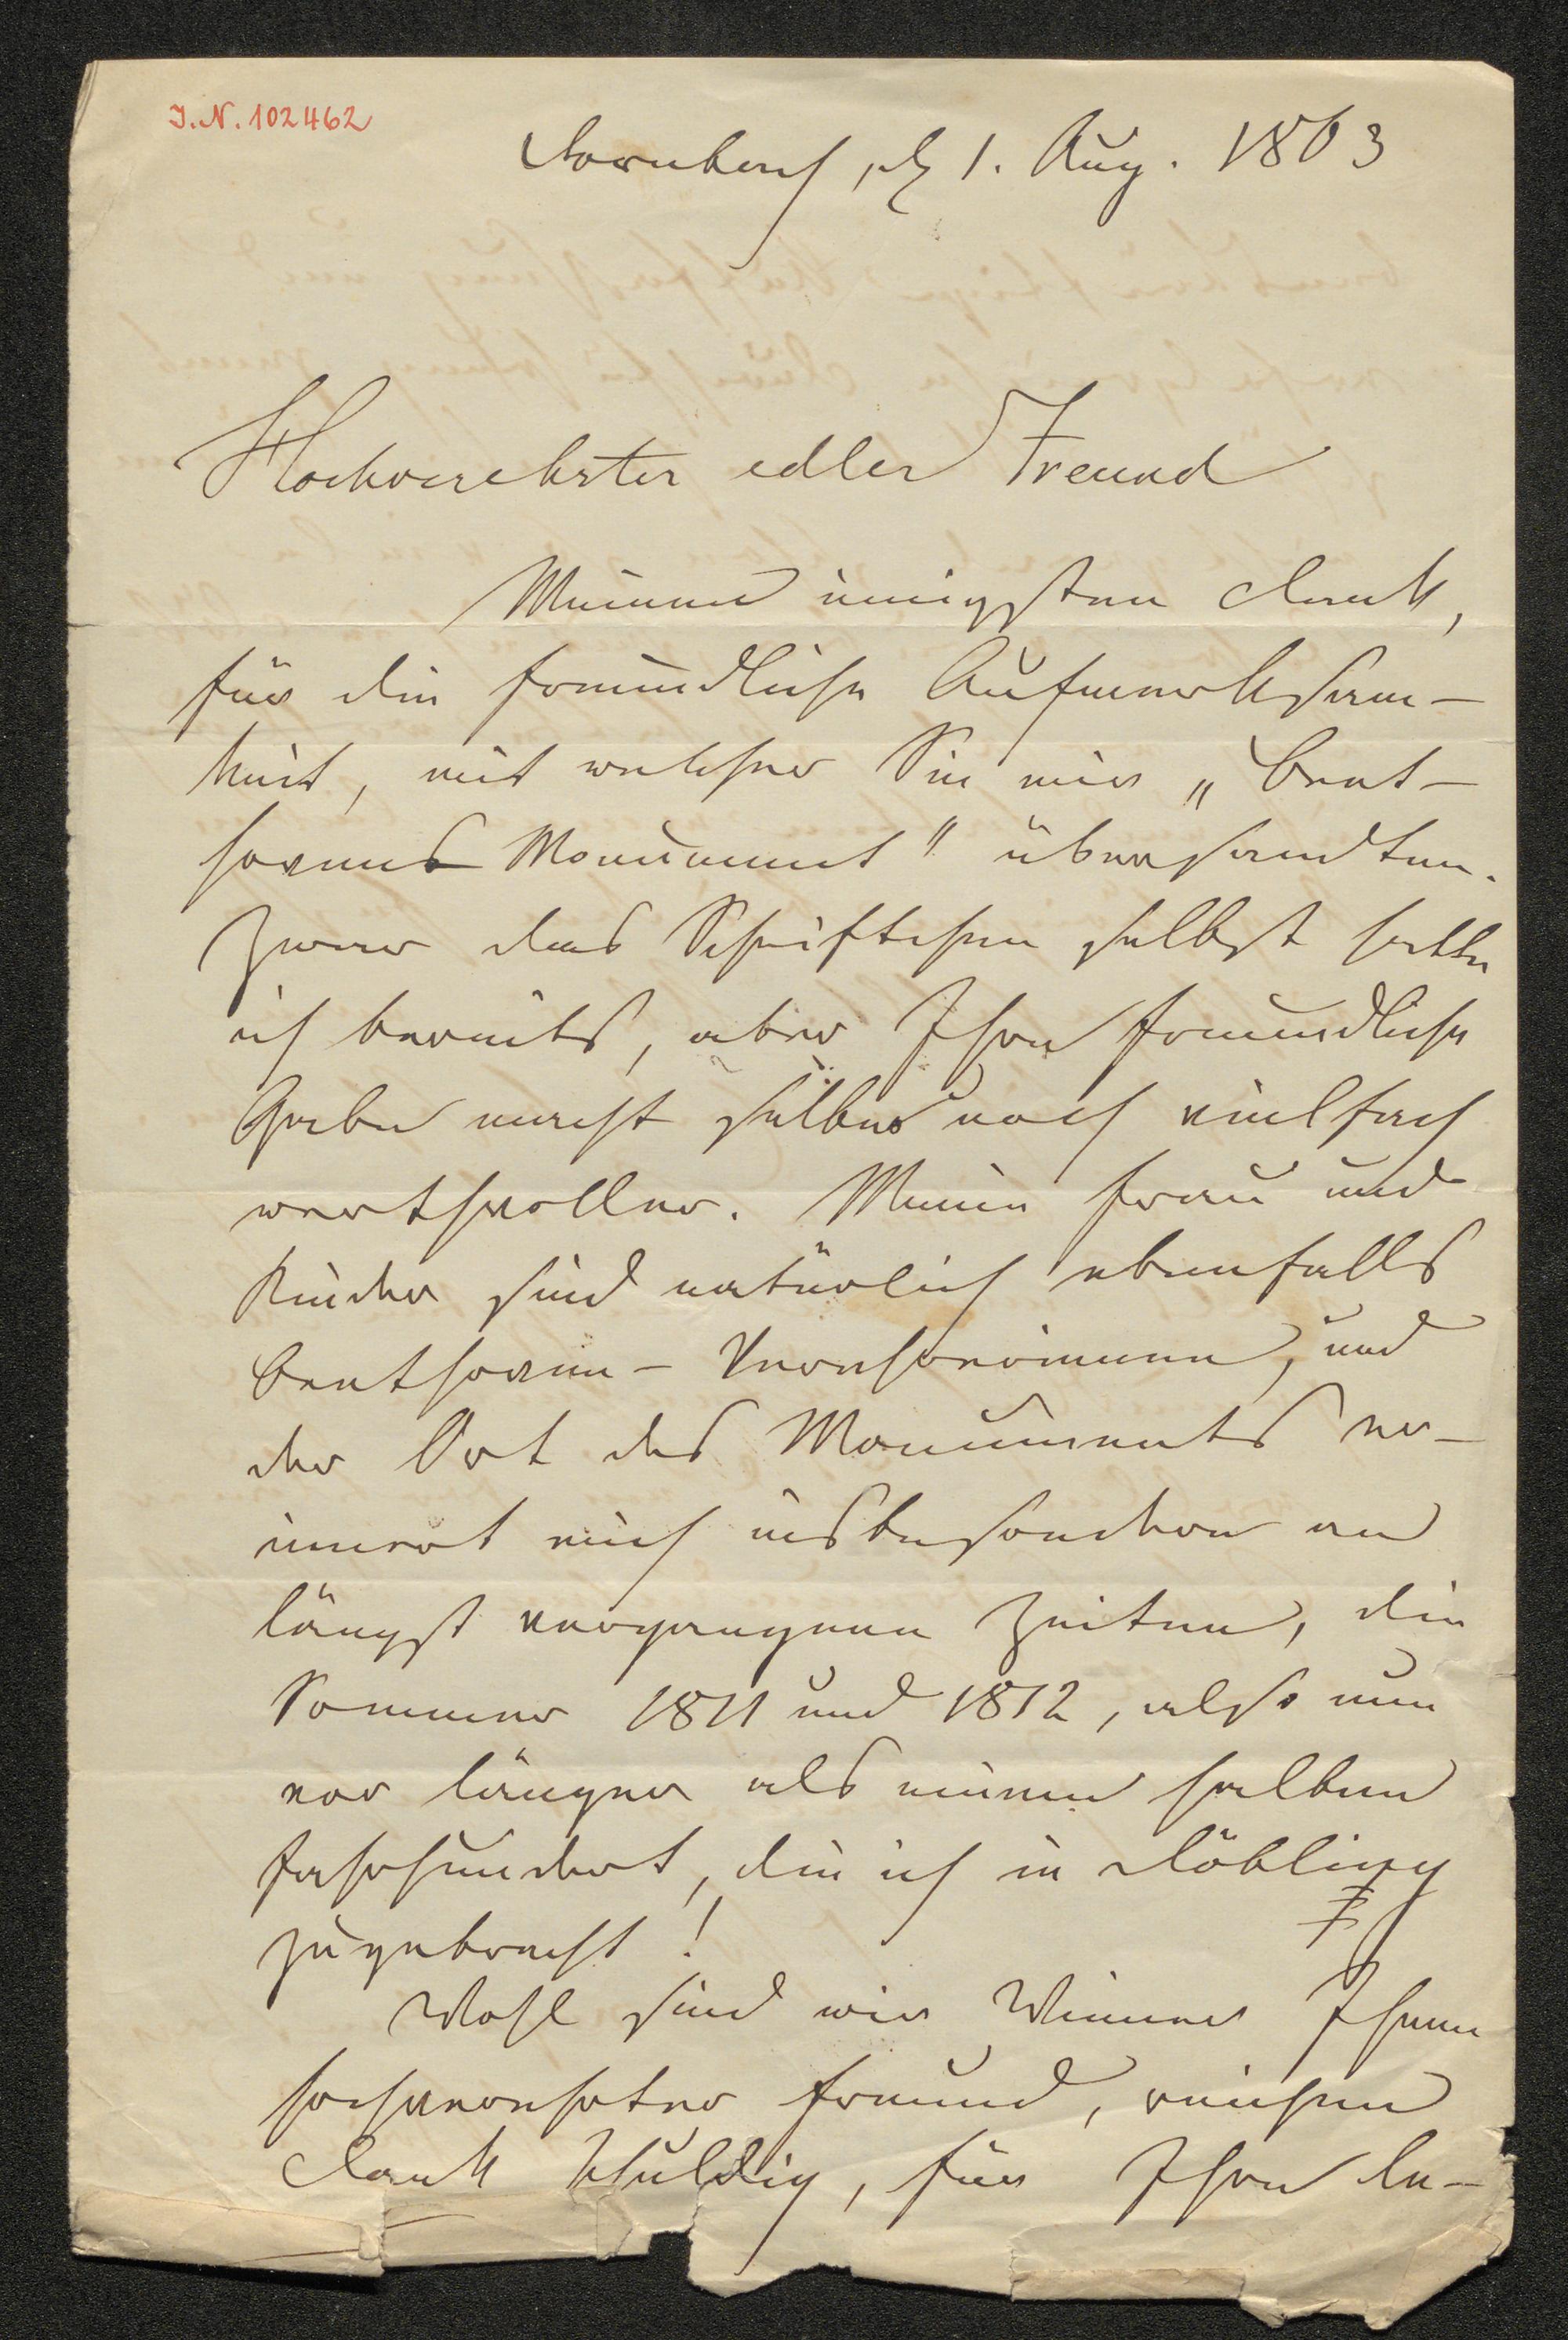 I.N. 102462
Dornbach, d 1. Aug. 1863
Hochverehrter edler Freund
Meinen innigsten Dank,
für die freundliche Aufmerksam-
keit, mit welcher Sie mir „Beet-
hovens Monument" übersandten.
Zwar das Schriftchen selbst hatte
ich bereits, aber Ihre freundliche
Gabe macht selbes noch vielfach
werthvoller. Meine Frau und
Kinder sind natürlich ebenfalls
Beethoven-Verehrerinnen, und
der Ort des Monuments er-
innert mich insbesondere an
längst vergangene Zeiten, die
Sommer 1811 und 1812, also nun
vor länger als einem halben
Jahrhundert, die ich in Döbling
zugebracht!
Wohl sind wir Wiener Ihnen
hochverehrter Freund, reichen
Dank schuldig, für Ihre be-